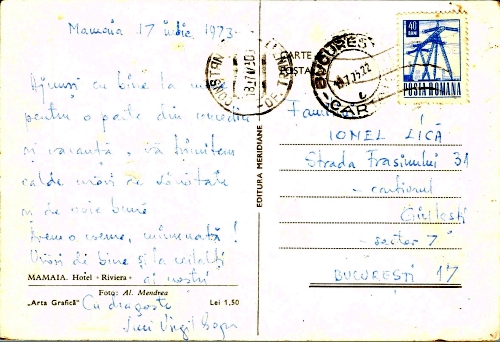 Mamaia 17 iulie 1973
Ajunși cu bine la
pentru o parte din concediu
și vacanță, vă trimitem
calde urări de sănătate
și de voie bună
Avem o vreme, minunată!
Urări de bine și la ceilalți
ai noștri
Cu dragoste
Virgil
MAMAIA. Hotel «Riviera»
Foto: Al. Mendrea
„Arta Grafică"
Lei 1,50
EDITURA MERIDIANE
CARTE
POȘTALĂ
CONSTANȚA
BUCUREȘTI
CAR
40
BANI
POSTA ROMANA
Familia
IONEL LICĂ
Strada Frasinului 31
- cartierul
Giulești
- sector 7
BUCUREȘTI 17